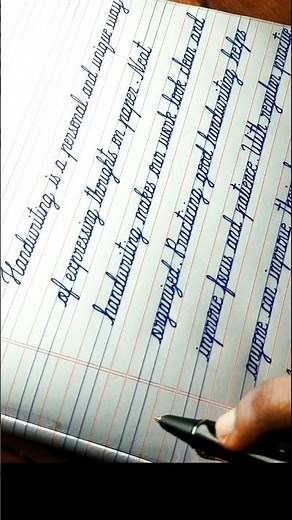 Handwriting is a personal and unique way
of expressing thoughts on paper. Neat
handwriting makes our work look clear and
organized. Practicing good handwriting helps
improve focus and patience. With regular
anyone can improve